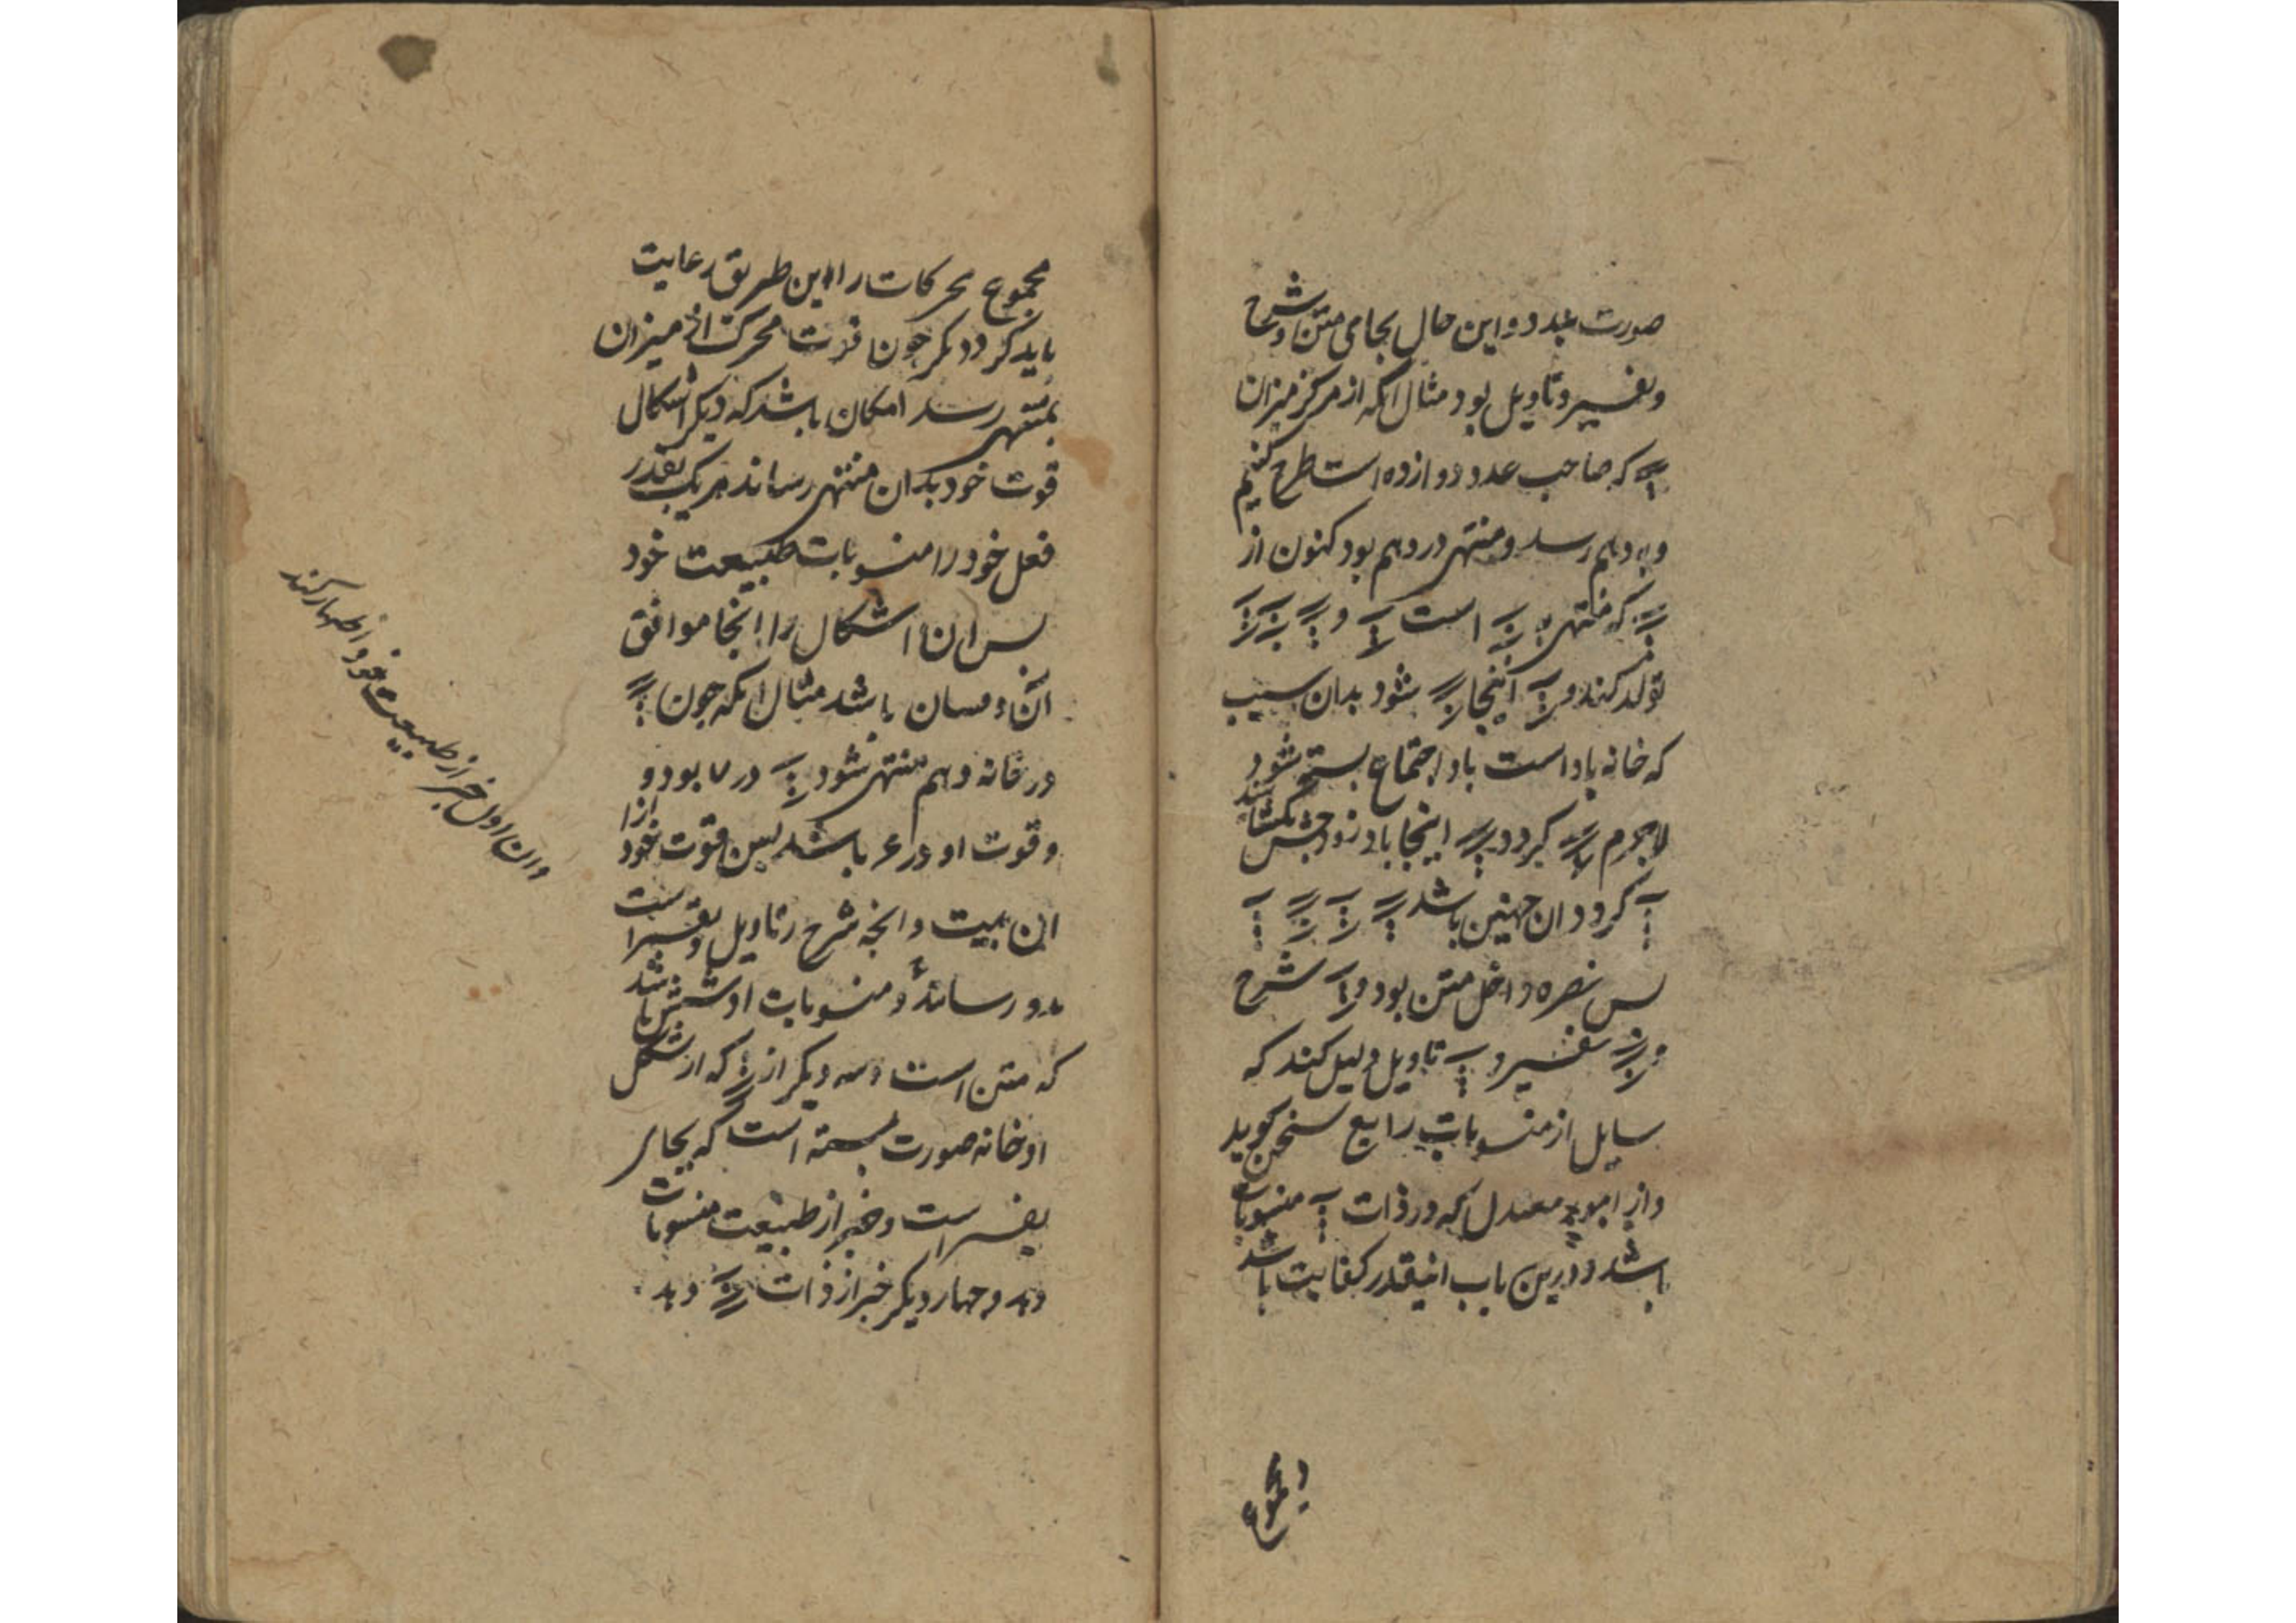 صورت بندد و این حال بجامی متن و شرح
و تفسیر و تاویل بود مثال انکه از مرکز میزان
که صاحب عدد دوازده است طرح کنیم
و به دهم رسد و منتهی در دهم بود کنون از
که منتهی است و
تولد کند و اینجا شود بدان سبب
که خانه باد است باد اجتماع بسته شود
لاجرم کردد اینجا باد زود
کردد ان جهنین باشد
بس نصره داخل متن بود و شرح
و تفسیر و تاویل دلیل کند که
سایل از منسوبات رابع سخن کوید
و از معتدل که در ذات منسوبات
باشد و درین باب اینقدر کفایت باشد
و مجموع
مجموع محرکات را این طریق رعایت
باید کرد دیکر جون قوت محرک از میزان
بمنتهی رسد امکان باشد که دیکر اشکال
قوت خود بدان منتهی رساند هریک بقدر
فعل خود را منسوبات طبیعت خود
بس ان اشکال را اینجا موافق
آن دمسان باشد مثال انکه جون
در خانه دهم منتهی شود در ۷ بود و
و قوت او در ۴ باشد بس قوت خود ازا
ان بیت و انچه شرح و تاویل و تفسیر است
بدو رساند و منسوبات او شش باشد
که متن است و سه دیکر از که از شکل
او خانه صورت بسته است که بجای
تفسیر است و خبر از طبیعت منسوبات
دهد و جهار دیکر خبر از ذات دهد
و ان اول خبر از طبیعت خود اظهار کند